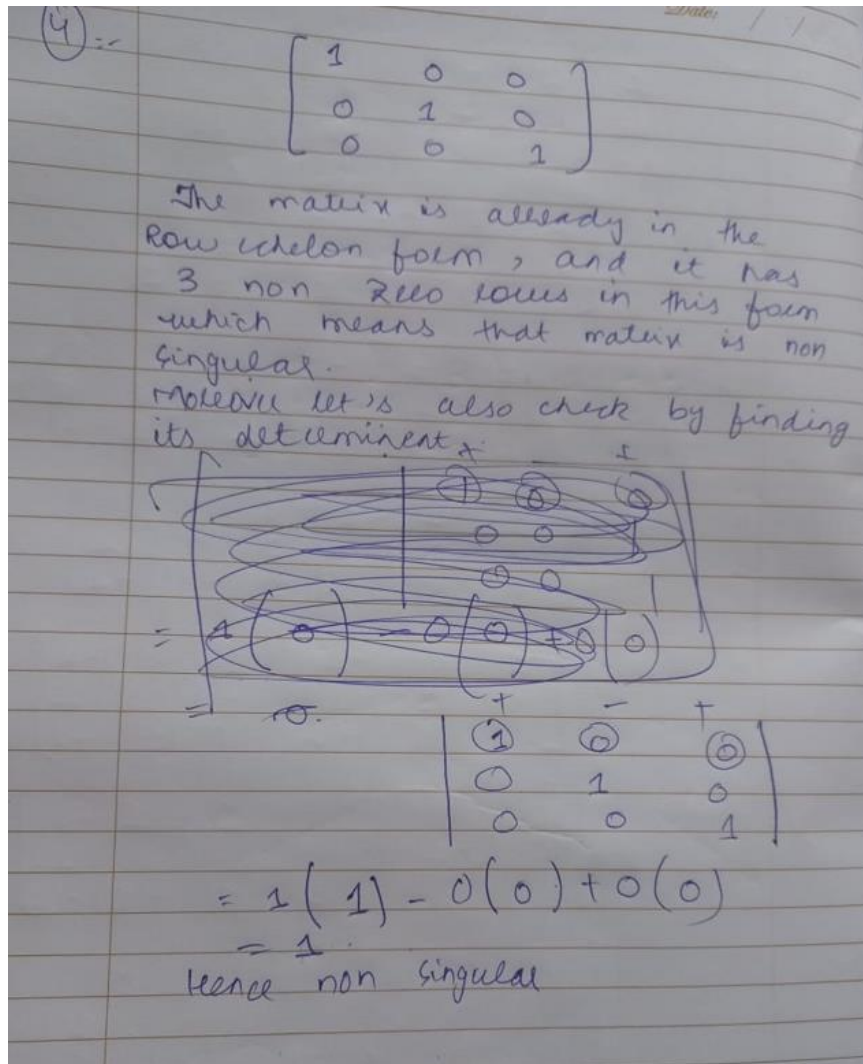 Date: / /
4 :-
1 0 0
0 1 0
0 0 1
The matrix is already in the
Row echelon form, and it has
3 non zero rows in this form
which means that matrix is non
singular.
Moreover let's also check by finding
its determinent
+ - +
1 0 0
0 1 0
0 0 1
= 1 ( 1 ) - 0 ( 0 ) + 0 ( 0 )
= 1.
Hence non singular